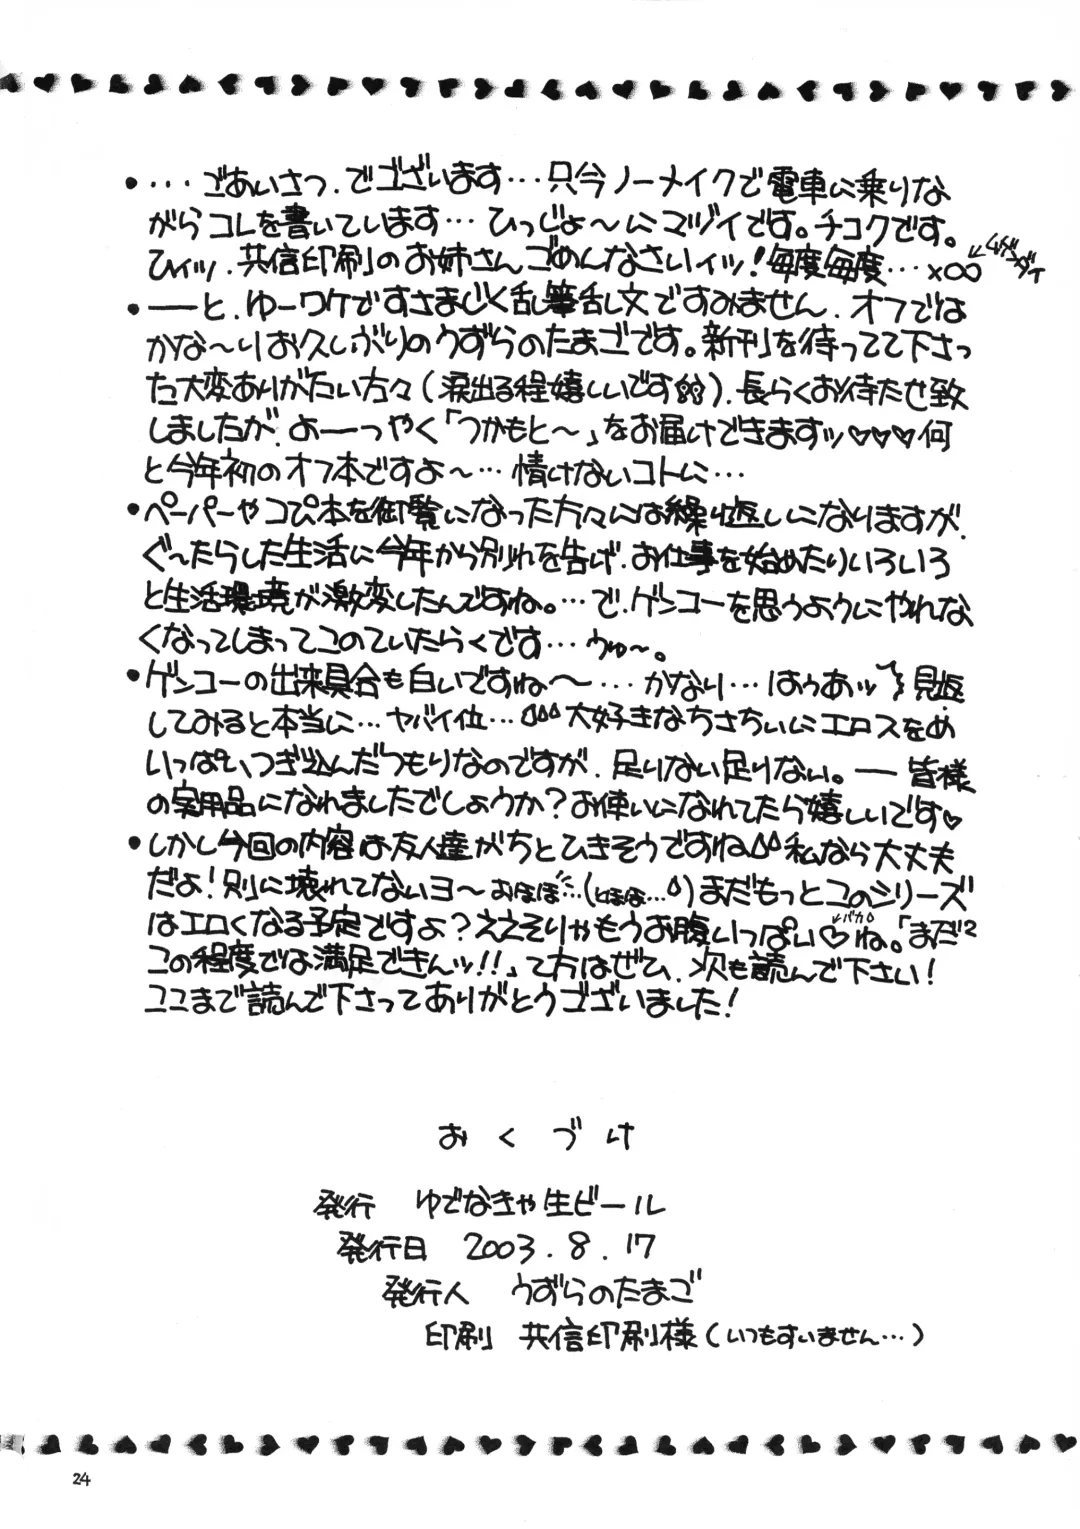 ・・・・ごあいさつ、でございます…只今ノーメイクで電車に乗りな
がらコレを書いています…ひっじょ〜にマヅイです。チコクです。
ひィッ、共信印刷のお姉さんごめんなさいィッ!毎度毎度…×∞
・——と、ゆーワケですさまじく乱筆乱文ですみません、オフでは
かな〜りお久しぶりのうずらのたまごです。新刊を待ってて下さっ
た大変ありがたい方々(涙出る程嬉しいです)、長らくお待たせ致
しましたが、よーーつやく「つかもと〜」をお届けできますッ♡♡♡何
と今年初のオフ本ですよ〜…情けないコトに…
・ペーパーやコピ本を御覧になった方々には繰り返しになりますが、
ぐ〜たらした生活に今年から別れを告げ、お仕事を始めたりいろいろ
と生活環境が激変したんですね。…で、ゲンコーを思うようにやれな
くなってしまってこのていたらくです…うゅ〜。
・ゲンコーの出来具合も白いですね〜…かなり…はぅあッ 見返
してみると本当に…ヤバイ位…大好きなちさちぃにエロスをめ
いっぱいつぎ込んだつもりなのですが、足りない足りない。—皆様
の実用品になれましたでしょうか?お使いになれてたら嬉しいです♡
・しかし今回の内容は友人達がちとひきそうですね 私なら大丈夫
だよ!別に壊れてないヨ〜おほほ…(とほほ…)まだもっとこのシリーズ
はエロくなる予定ですよ?ええそりゃもうお腹いっぱい♡ね。「まだ²
←バカ
この程度では満足できんッ!!」て方はぜひ、次も読んで下さい!
ここまで読んで下さってありがとうございました!
おくづけ
発行 ゆでなきゃ生ビール
発行日 2003.8.17
発行人 うずらのたまご
印刷 共信印刷様(いつもすいません…)
24